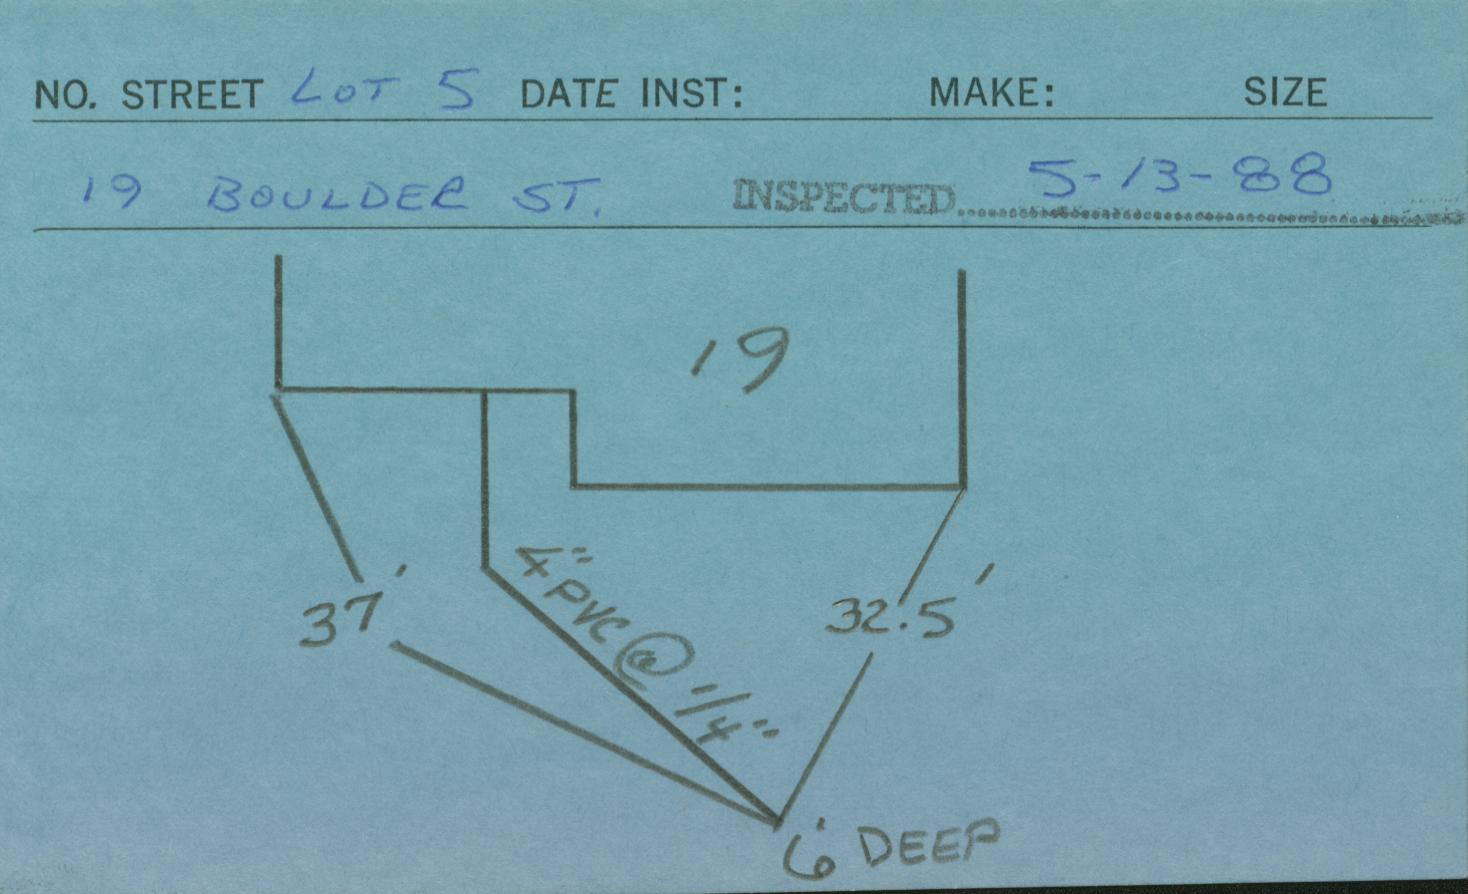 NO. STREET LOT 5 DATE INST: MAKE: SIZE
19 BOULDER ST. INSPECTED 5-13-88
19
4" PVC @ 1/4"
37'
32.5'
6' DEEP